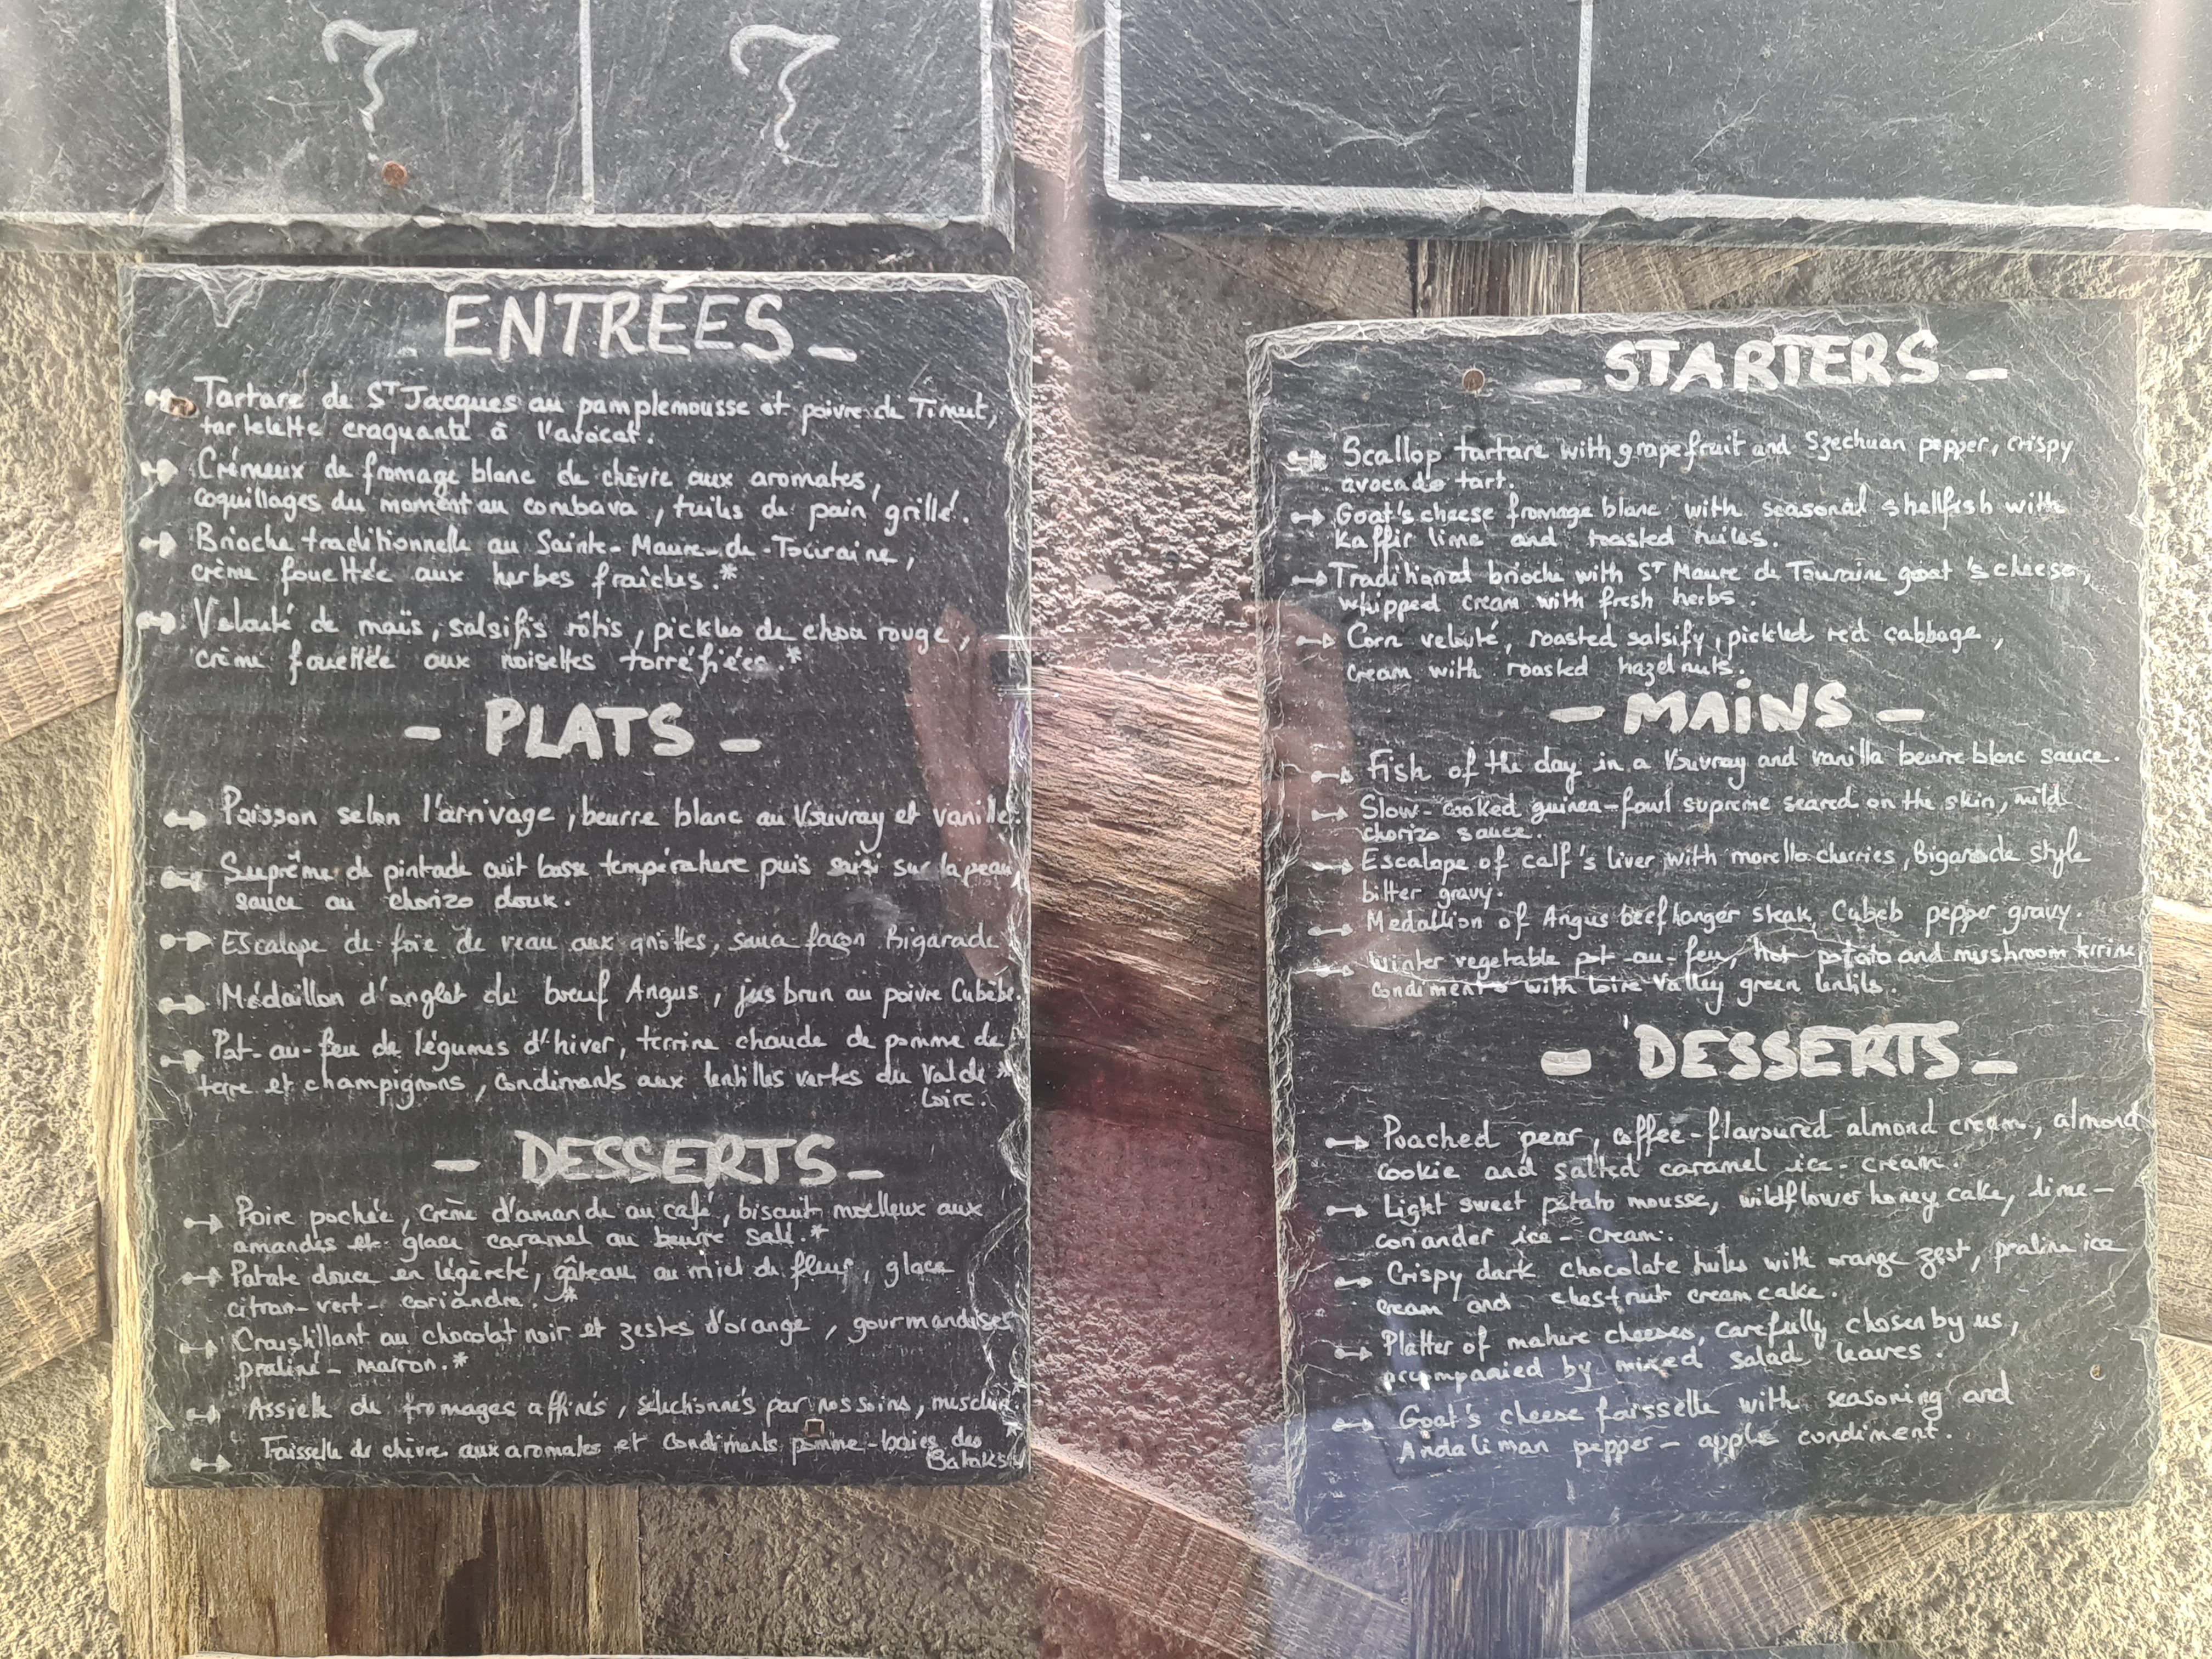 ?
?
- ENTRÉES -
Tartare de St Jacques au pamplemousse et poivre de Timut,
tartelette craquante à l'avocat.
Crémeux de fromage blanc de chèvre aux aromates,
coquillages du moment au combava, tuiles de pain grillé.
Brioche traditionnelle au Sainte-Maure-de-Touraine,
crème fouettée aux herbes fraîches.*
Velouté de maïs, salsifis rôtis, pickles de choux rouge,
crème fouettée aux noisettes torréfiées.*
- PLATS -
Poisson selon l'arrivage, beurre blanc au Vouvray et vanille.
Suprême de pintade cuit basse température puis saisi sur la peau,
sauce au chorizo doux.
Escalope de foie de veau aux griottes, sauce façon Bigarade
Médaillon d'onglet de boeuf Angus, jus brun au poivre Cubèbe.
Pot-au-feu de légumes d'hiver, terrine chaude de pomme de
terre et champignons, condiments aux lentilles vertes du Val de *
Loire.
- DESSERTS -
Poire pochée, crème d'amande au café, biscuit moelleux aux
amandes et glace caramel au beurre salé.*
Patate douce en légèreté, gâteau au miel de fleurs, glace
citron-vert-coriandre. *
Croustillant au chocolat noir et zestes d'orange, gourmandises
praliné-marron.*
Assiette de fromages affinés, sélectionnés par nos soins, mesclun.
Faisselle de chèvre aux aromates et condiments pomme-baies des *
Bataks.
- STARTERS -
Scallop tartare with grapefruit and Szechuan pepper, crispy
avocado tart.
Goat's cheese fromage blanc with seasonal shellfish with
Kaffir lime and toasted tuiles.
Traditional brioche with St Maure de Touraine goat's cheese,
whipped cream with fresh herbs.
Corn velouté, roasted salsify, pickled red cabbage,
cream with roasted hazelnuts.
- MAINS -
Fish of the day in a Vouvray and vanilla beurre blanc sauce.
Slow-cooked guinea-fowl supreme seared on the skin, mild
chorizo sauce.
Escalope of calf's liver with morello cherries, Bigarade style
bitter gravy.
Medallion of Angus beef hanger steak, Cubeb pepper gravy.
Winter vegetable pot-au-feu, hot potato and mushroom terrine,
condiments with Loire Valley green lentils.
- DESSERTS -
Poached pear, coffee-flavoured almond cream, almond
cookie and salted caramel ice-cream.
Light sweet potato mousse, wildflower honey cake, lime-
coriander ice-cream.
Crispy dark chocolate tuiles with orange zest, praline ice
cream and chestnut cream cake.
Platter of mature cheeses, carefully chosen by us,
accompanied by mixed salad leaves.
Goat's cheese faisselle with seasoning and
Andaliman pepper-apple condiment.